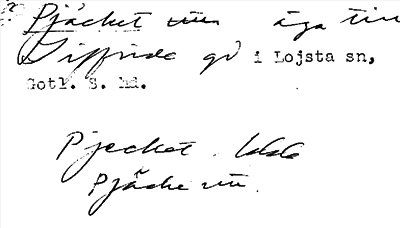 Pjäcket äga till
Siffride gd i Lojsta sn,
Gotl. S. hd.
Pjecket.
Pjäcke